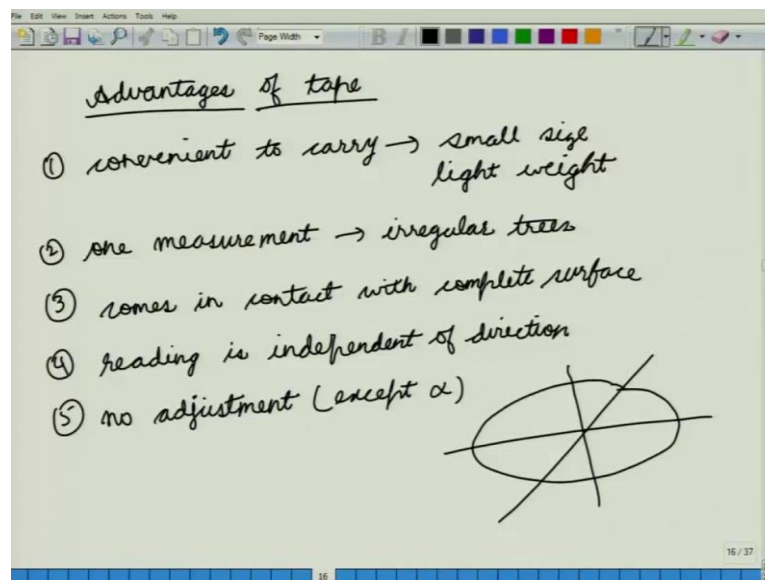 File Edit View Insert Actions Tools Help
Page Width
B I
Advantages of tape
① convenient to carry → small size
light weight
② one measurement → irregular trees
③ comes in contact with complete surface
④ reading is independent of direction
⑤ no adjustment (except α)
16 / 37
16